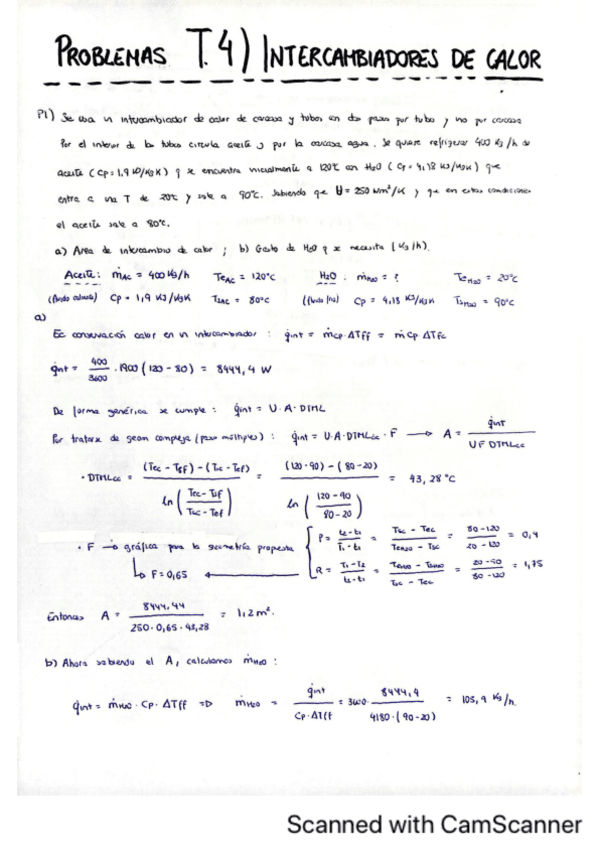 PROBLEMAS T.4) INTERCAMBIADORES DE CALOR
P1) Se usa un intercambiador de calor de carcasa y tubos con dos pasos por tubo y uno por carcasa
Por el interior de los tubos circula aceite y por la carcasa agua. Se quiere refrigerar 400 Kg/h de
aceite (Cp = 1,9 KJ/KgK) q se encuentra inicialmente a 120°C con H2O (Cp = 4,18 KJ/KgK) que
entra a una T de 20°C y sale a 90°C. Sabiendo que U = 250 W/m²/K y que en estas condiciones
el aceite sale a 80°C.
a) Área de intercambio de calor ; b) Gasto de H2O q se necesita (Kg/h).
Aceite: ṁAC = 400 Kg/h TeAC = 120°C H2O : ṁH2O = ? TeH2O = 20°C
Cp = 1,9 KJ/KgK TsAC = 80°C (fluido frío) Cp = 4,18 KJ/KgK TsH2O = 90°C
a)
Ec conservación calor en un intercambiador : q̇int = ṁCp·ΔTff = ṁCp ΔTfc
q̇int = 400/3600 · 1900 (120 - 80) = 8444,4 W
De forma genérica se cumple : q̇int = U·A·DTML
Por tratarse de geom compleja (paso múltiples) : q̇int = U·A·DTMLcc·F → A = q̇int / (U F DTMLcc)
· DTMLcc = ((Tec - Tsf) - (Tsc - Tef)) / ln((Tec - Tsf)/(Tsc - Tef)) = ((120 - 90) - (80 - 20)) / ln((120 - 90)/(80 - 20)) = 43,28 °C
· F → gráfica para la geometría propuesta P = (t2 - t1)/(T1 - t1) = (Tsc - Tec)/ = (80 - 120)/(20 - 120) = 0,4
F = 0,65 R = (T1 - T2)/(t2 - t1) = /(Tsc - Tec) = (20 - 90)/(80 - 120) = 1,75
Entonces A = 8444,44 / (250·0,65·43,28) = 1,2 m².
b) Ahora sabiendo el A, calculamos ṁH2O :
q̇int = ṁH2O · Cp · ΔTff => ṁH2O = q̇int / (Cp·ΔTff) = 3600 · 8444,4 / (4180·(90 - 20)) = 105,9 Kg/h.
Scanned with CamScanner